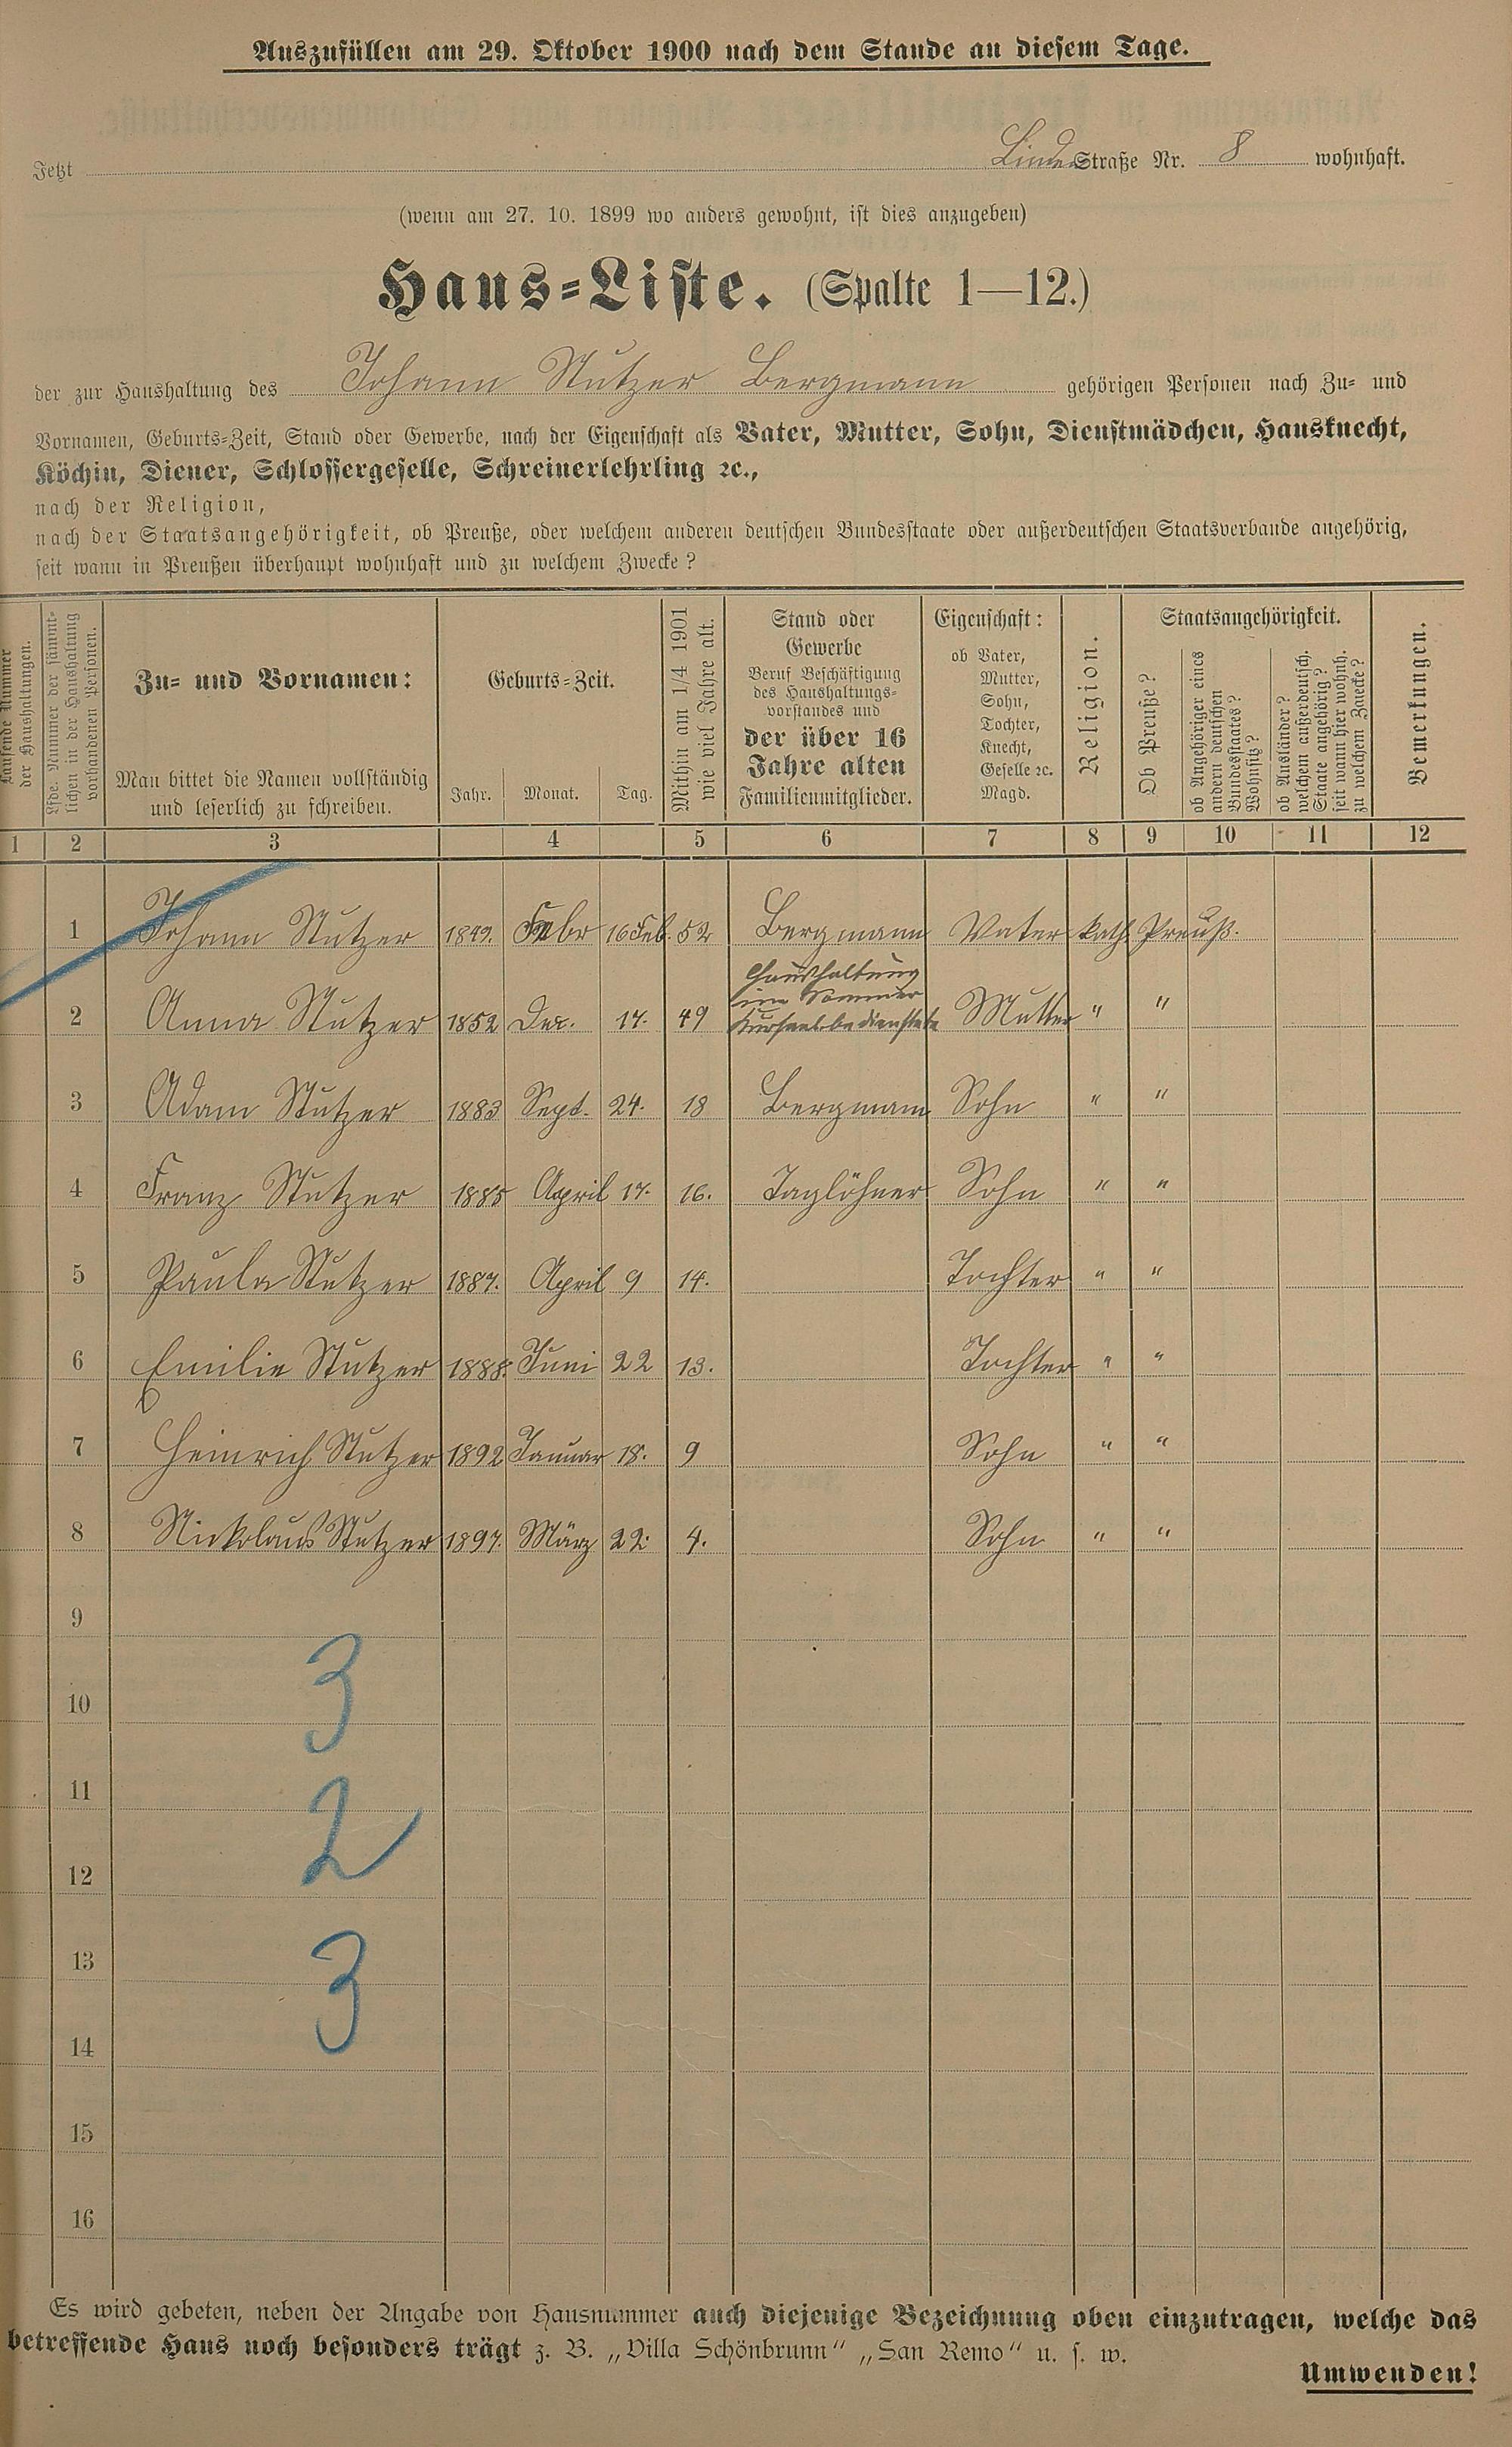 Auszufüllen am 29. Oktober 1900 nach dem Stande an diesem Tage.
Jetzt Linden Straße Nr. 8 wohnhaft.
(wenn am 27. 10. 1899 wo anders gewohnt, ist dies anzugeben)
Haus-Liste. (Spalte 1—12.)
der zur Haushaltung des Johann Stutzer Bergmann gehörigen Personen nach Zu- und
Vornamen, Geburts-Zeit, Stand oder Gewerbe, nach der Eigenschaft als Vater, Mutter, Sohn, Dienstmädchen, Hausknecht,
Köchin, Diener, Schlossergeselle, Schreinerlehrling ꝛc.,
nach der Religion,
nach der Staatsangehörigkeit, ob Preuße, oder welchem anderen deutschen Bundesstaate oder außerdeutschen Staatsverbande angehörig,
seit wann in Preußen überhaupt wohnhaft und zu welchem Zwecke?
Laufende Nummer
der Haushaltungen.
Lfde. Nummer der sämmt-
lichen in der Haushaltung
vorhandenen Personen.
Zu- und Vornamen:
Man bittet die Namen vollständig
und leserlich zu schreiben.
Geburts-Zeit.
Jahr. Monat. Tag.
Mithin am 1/4 1901
wie viel Jahre alt.
Stand oder
Gewerbe
Beruf Beschäftigung
des Haushaltungs-
vorstandes und
der über 16
Jahre alten
Familienmitglieder.
Eigenschaft:
ob Vater,
Mutter,
Sohn,
Tochter,
Knecht,
Geselle ꝛc.
Magd.
Religion.
Staatsangehörigkeit.
Ob Preuße?
ob Angehöriger eines
andern deutschen
Bundesstaates?
Wohnsitz?
ob Ausländer?
welchem außerdeutsch.
Staate angehörig?
seit wann hier wohnh.
zu welchem Zwecke?
Bemerkungen.
1 2 3 4 5 6 7 8 9 10 11 12
1 Johann Stutzer 1849. Febr 16 Feb. 52 Bergmann Vater kath Preuß.
Haushaltung
im Sommer
2 Anna Stutzer 1852 Dez. 17. 49 Kursaalbedienstete Mutter " "
3 Adam Stutzer 1883 Sept. 24. 18 Bergmann Sohn " "
4 Franz Stutzer 1885 April 17. 16. Taglöhner Sohn " "
5 Paula Stutzer 1887. April 9 14. Tochter " "
6 Emilie Stutzer 1888. Juni 22 13. Tochter " "
7 Heinrich Stutzer 1892 Januar 18. 9 Sohn " "
8 Nickolaus Stutzer 1897. März 22. 4. Sohn " "
9
3
10
11
2
12
13
3
14
15
16
Es wird gebeten, neben der Angabe von Hausnummer auch diejenige Bezeichnung oben einzutragen, welche das
betreffende Haus noch besonders trägt z. B. „Villa Schönbrunn" „San Remo" u. s. w.
Umwenden!